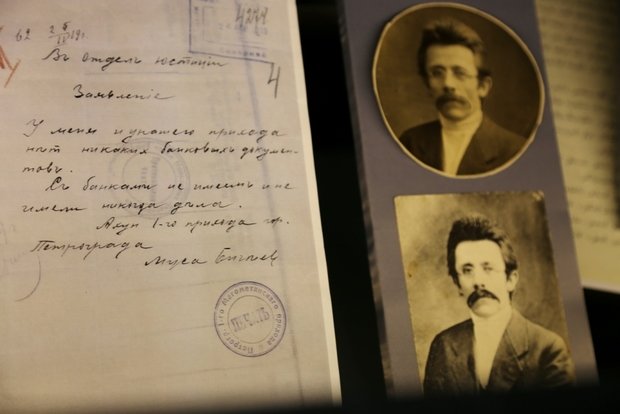 Въ отдѣлъ юстиціи
Заявленіе
У меня и у нашего прихода
нѣт никаких банковыхъ докумен-
товъ.
Съ банками не имеемъ и не
имели никогда дѣла.
Ахун 1-го прихода гор.
Петрограда
Муса Бигиев
ПЕЧАТЬ
4